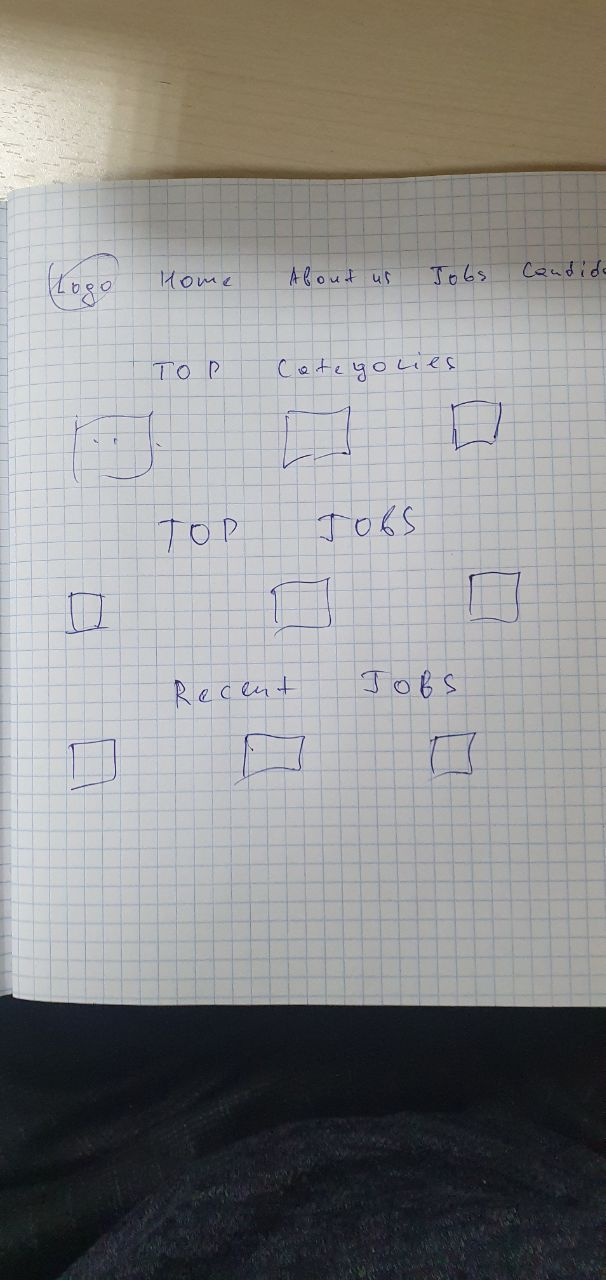 Logo Home About us Jobs Candid
TOP Categories
TOP JOBS
Recent JOBS